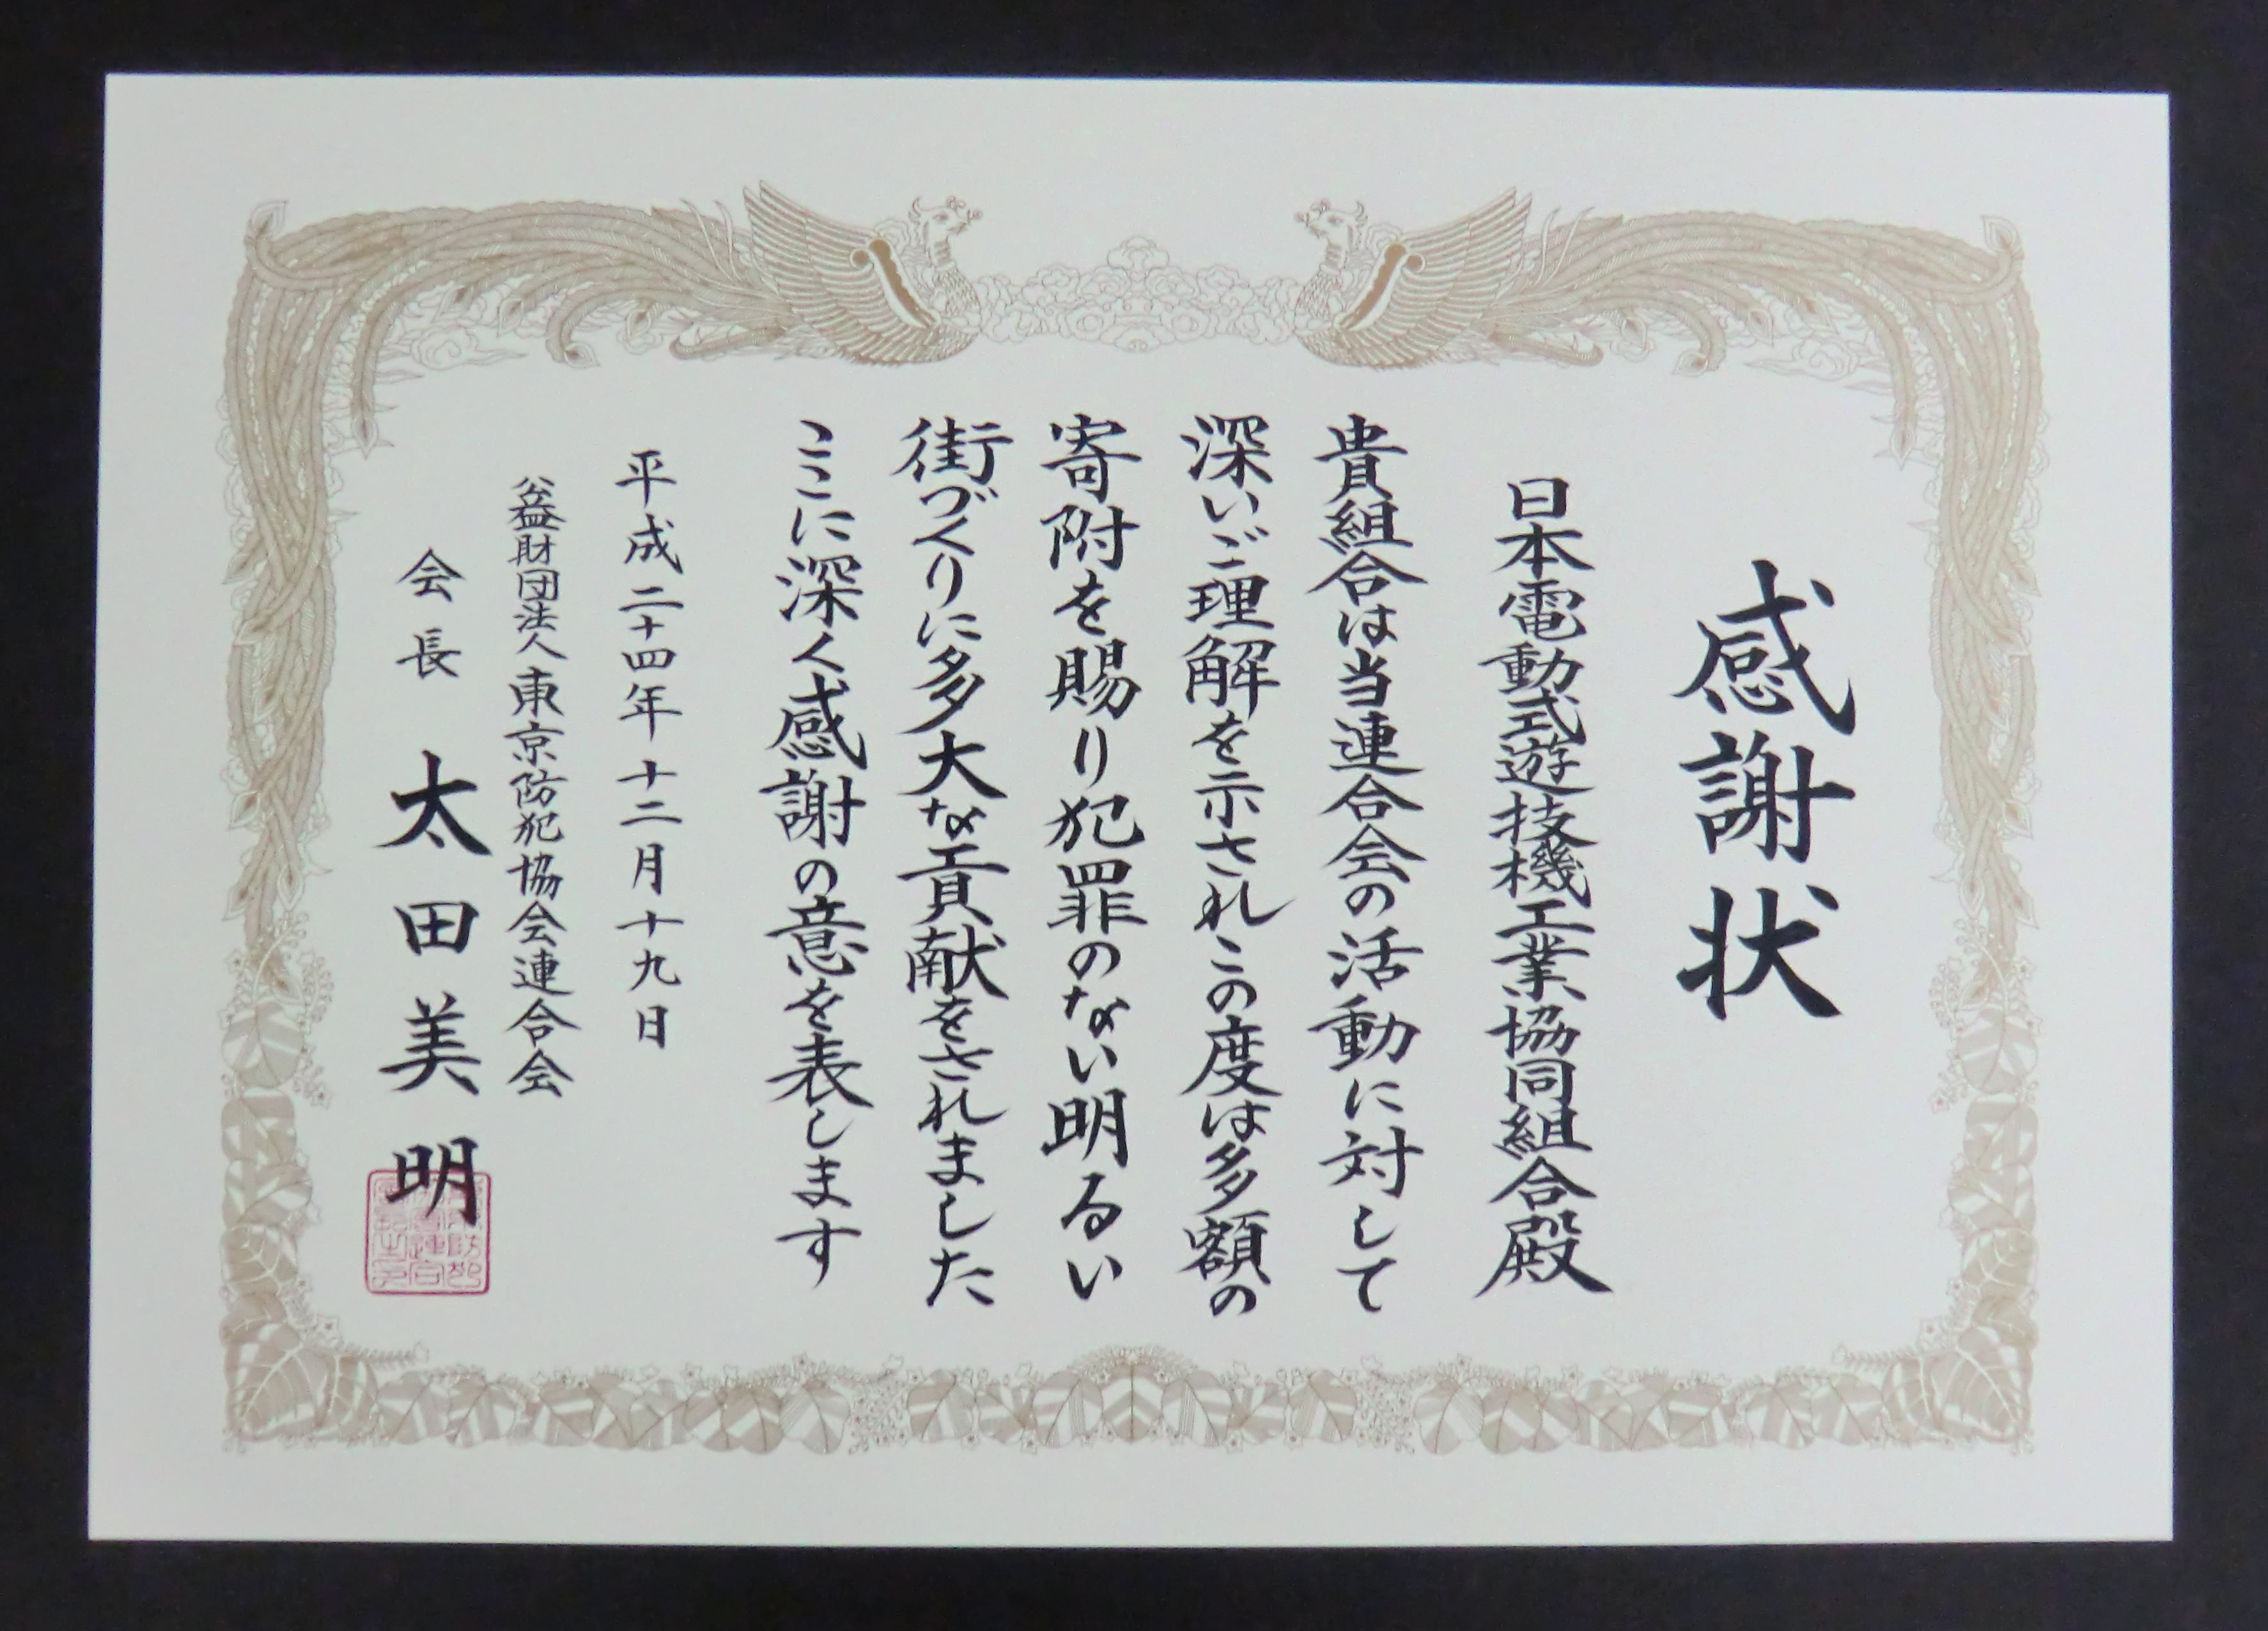 感謝状
日本電動式遊技機工業協同組合殿
貴組合は当連合会の活動に対して
深いご理解を示されこの度は多額の
寄附を賜り犯罪のない明るい
街づくりに多大な貢献をされました
ここに深く感謝の意を表します
平成二十四年十二月十九日
公益財団法人東京防犯協会連合会
会長 太田美明